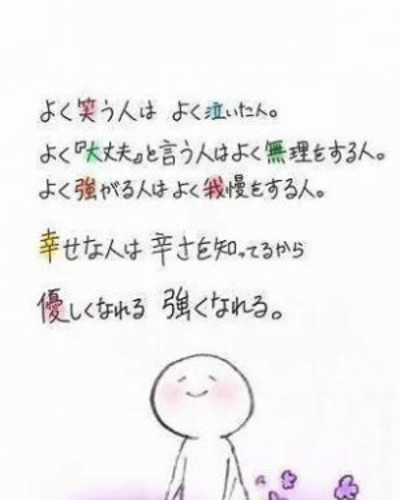 よく笑う人は よく泣いた人。
よく『大丈夫』と言う人はよく無理をする人。
よく強がる人はよく我慢をする人。
幸せな人は 辛さを知ってるから
優しくなれる 強くなれる。